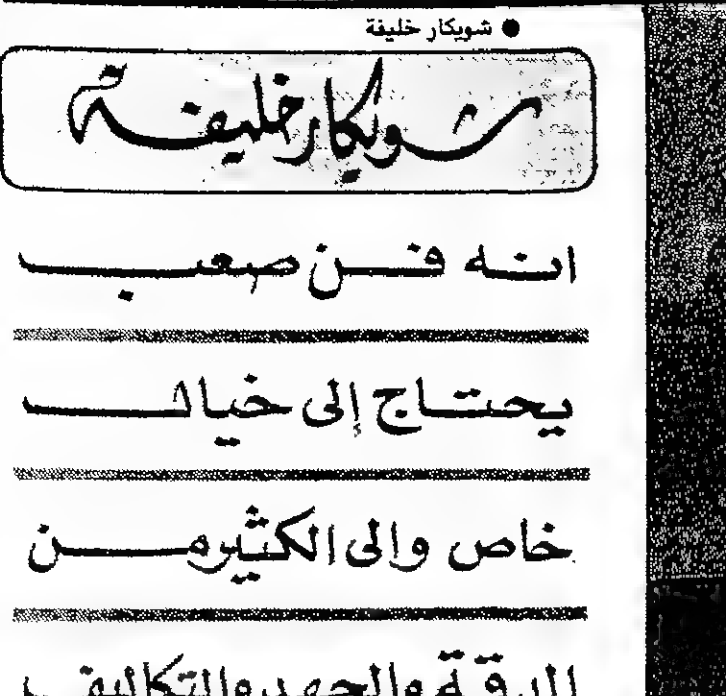 ● شويكار خليفة
شويكار خليفة
انه فن صعب
يحتاج إلى خيال
خاص والى الكثير من
الدقة والجهد والتكاليف